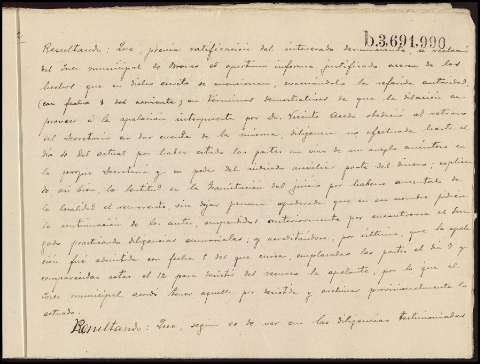 b.3.691.990
Resultando: Que, previa ratificación del interesado denunciante, se reclamó
del Juez municipal de Bronco el oportuno informe justificado acerca de los
hechos que en dicho escrito se enumeran, evacuándolo la referida autoridad
(con fecha 8 del corriente) en términos demostrativos de que la dilación en
proveer á la apelación interpuesta por Dn. Vicente Acedo obedeció al retraso
del Secretario en dar cuenta de la misma, diligencia no efectuada hasta el
día 10 del actual por haber estado los partes en vías de un arreglo amistoso en
la propia Secretaría y en poder del indicado auxiliar parte del dinero; explican-
do así bien, la lentitud en la tramitación del juicio por haberse ausentado de
la localidad el recurrente sin dejar persona apoderada que en su nombre pidiera
la continuación de los autos, suspendidos anteriormente por encontrarse el Juz-
gado practicando diligencias sumariales; y acreditándose, por último, que la apela-
ción fué admitida con fecha 8 del que cursa, emplazadas las partes el día 9 y
comparecidas estas el 12 para desistir del recurso la apelante, por lo que el
Juez municipal acordó tener aquella por desistida y archivar provisionalmente lo
actuado.
Resultando: Que, según es de ver en las diligencias testimoniadas